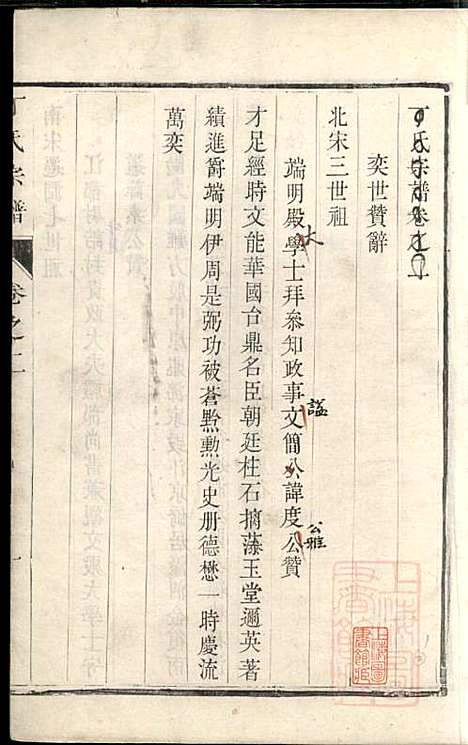 丁氏宗譜卷之二
奕世贊辭
北宋三世祖
端明殿大學士拜參知政事諡文簡公諱度公雅公贊
才足經時文能華國台鼎名臣朝廷柱石摛藻玉堂邇英著
績進爵端明伊周是弼功被蒼黔勳光史册德懋一時慶流
萬奕
丁氏宗譜
卷之二
一
上海圖書館藏